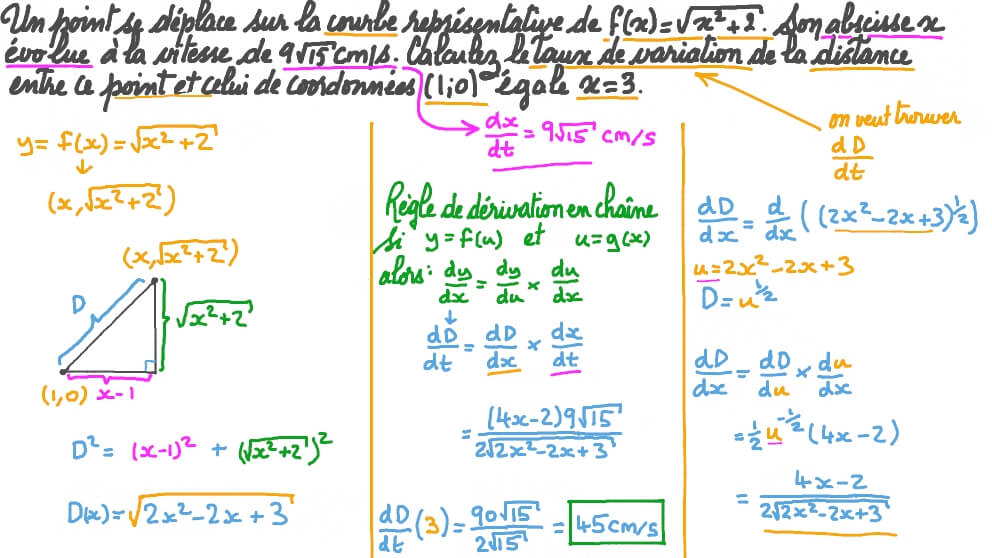 Un point se déplace sur la courbe représentative de f(x)=√(x²+2). Son abscisse x
évolue à la vitesse de 9√15 cm/s. Calculez le taux de variation de la distance
entre ce point et celui de coordonnées (1;0) égale x=3.
y= f(x)=√(x²+2)
↓
(x,√(x²+2))
(x,√(x²+2))
D
√(x²+2)
(1,0) x-1
D²= (x-1)² + (√(x²+2))²
D(x)=√(2x²-2x+3)
dx/dt = 9√15 cm/s
Règle de dérivation en chaîne
Si y=f(u) et u=g(x)
alors: dy/dx = dy/du × du/dx
↓
dD/dt = dD/dx × dx/dt
= (4x-2)9√15 / 2√(2x²-2x+3)
dD/dt (3) = 90√15 / 2√15 = 45cm/s
on veut trouver
dD/dt
dD/dx = d/dx ((2x²-2x+3)^½)
u=2x²-2x+3
D=u^½
dD/dx = dD/du × du/dx
=½ u^-½ (4x-2)
= 4x-2 / 2√(2x²-2x+3)